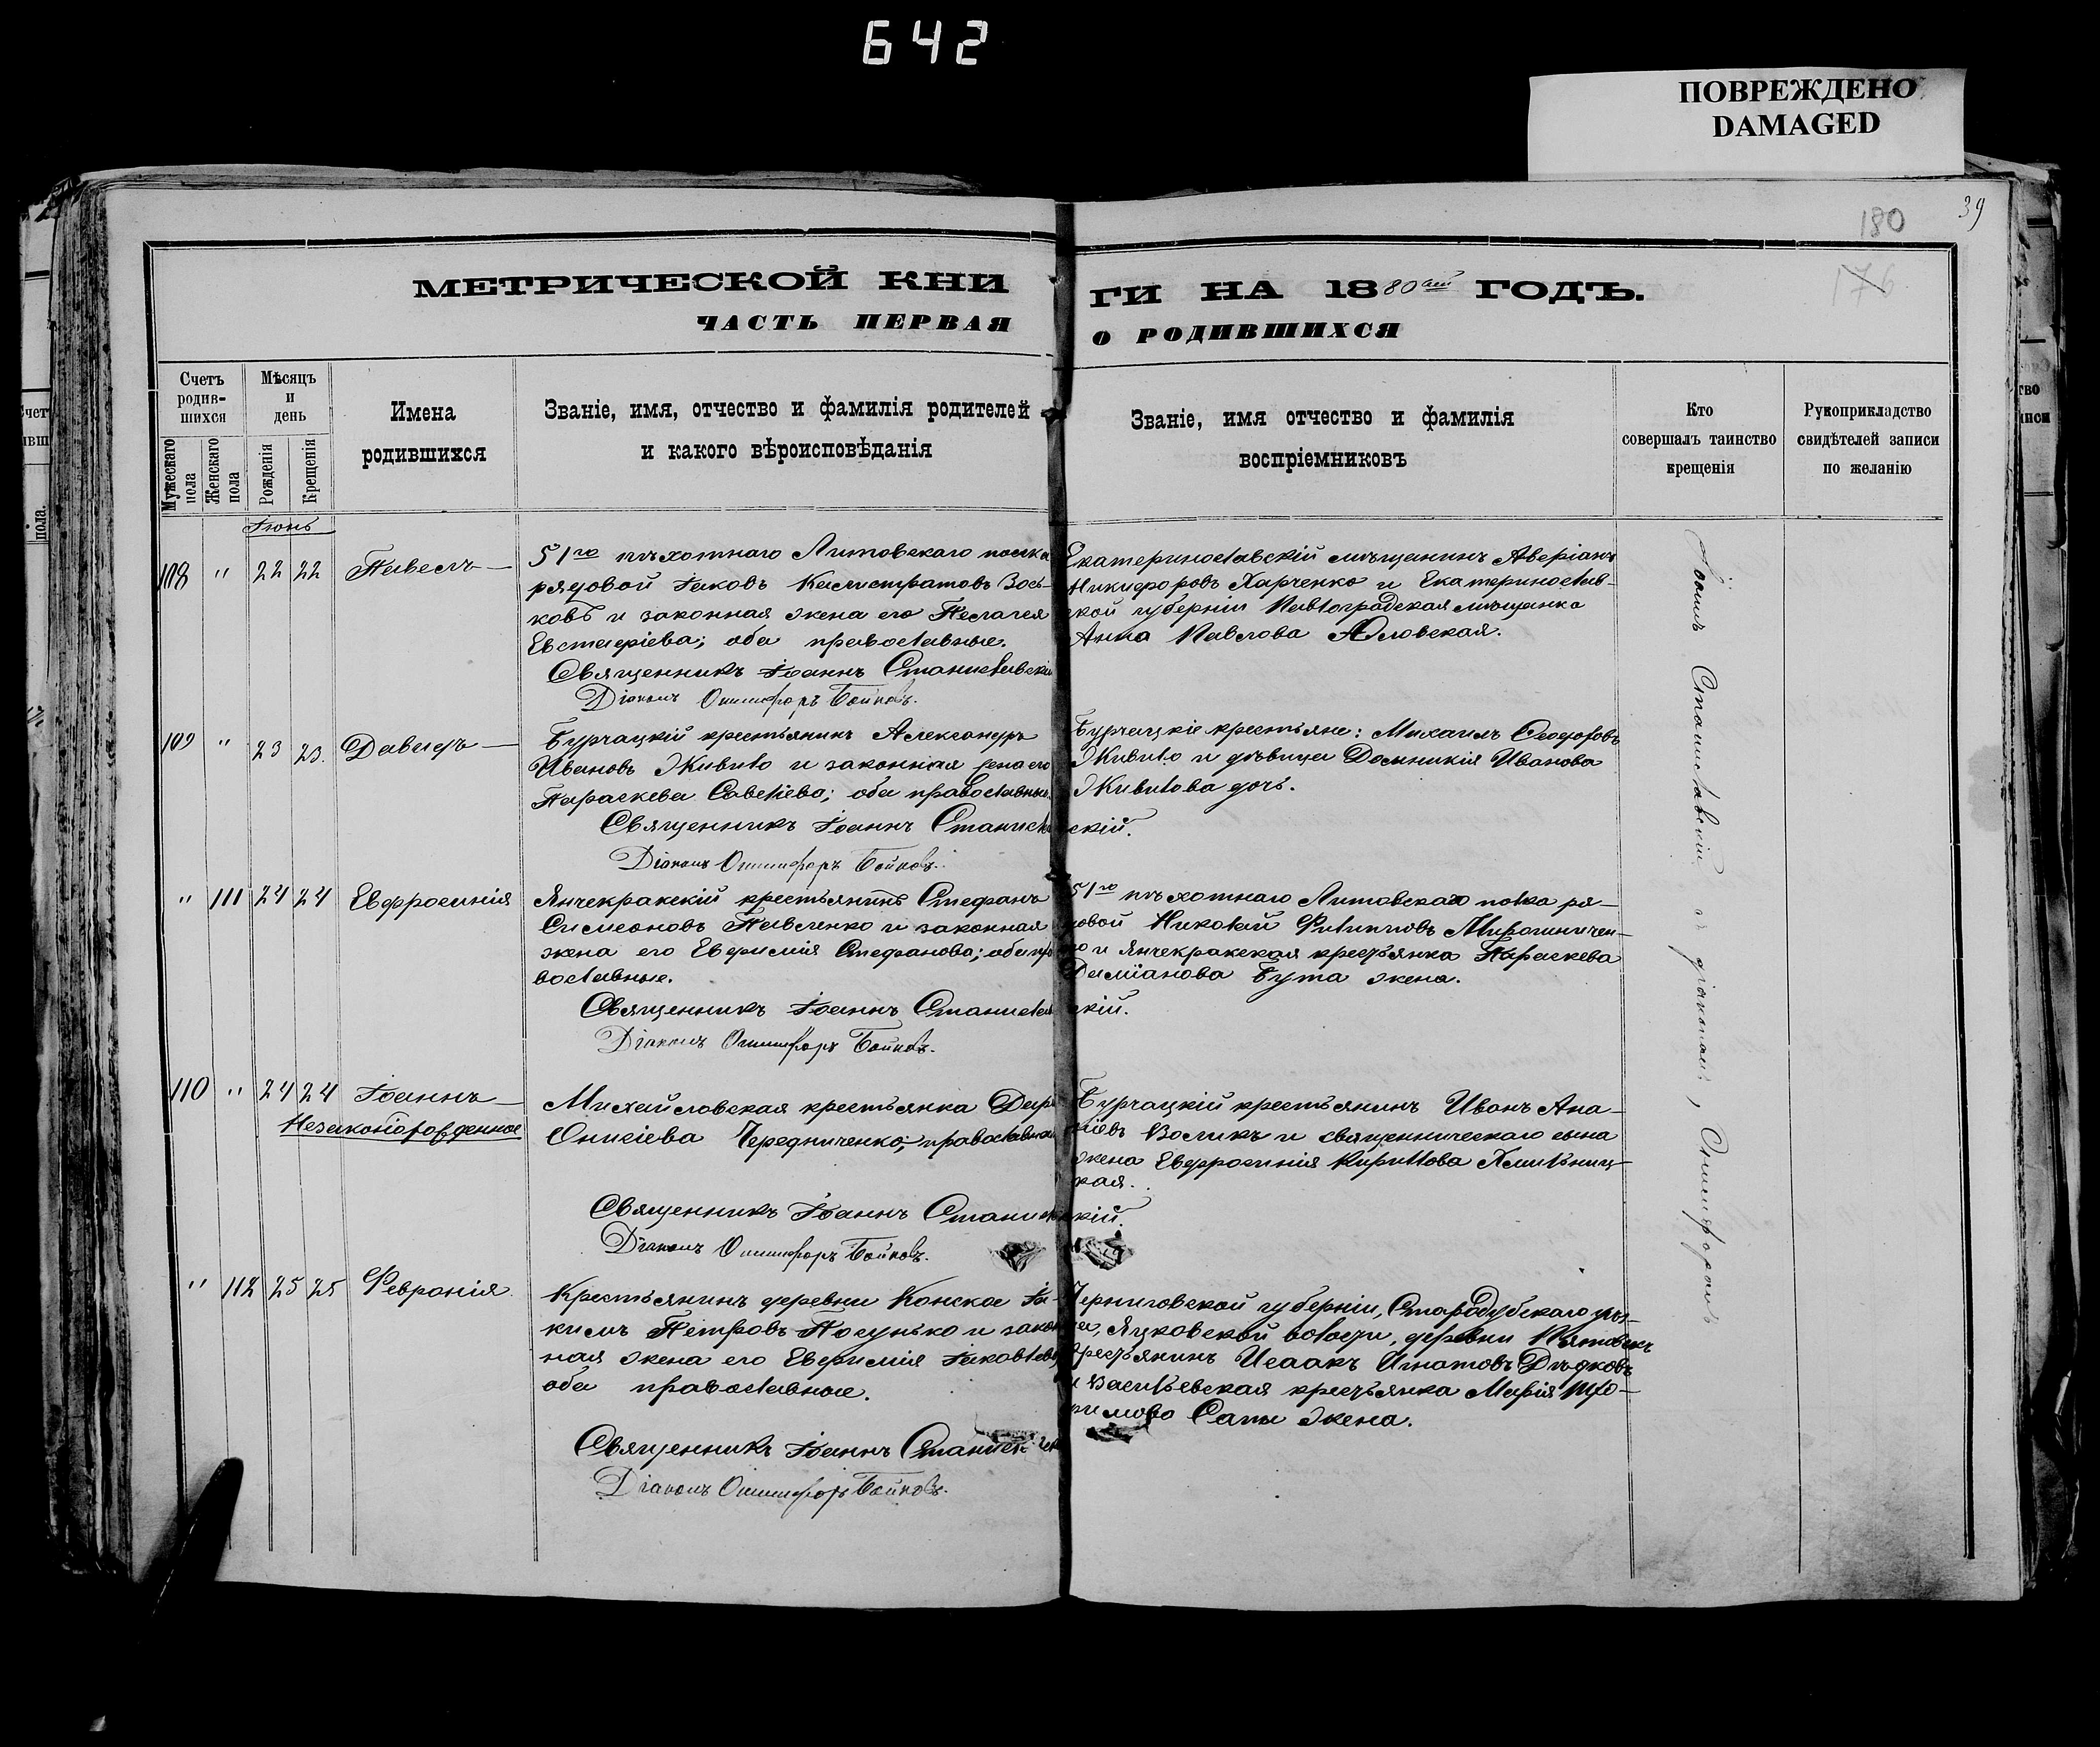 642
ПОВРЕЖДЕНО
DAMAGED
39
180
176
МЕТРИЧЕСКОЙ КНИ
ГИ НА 1880ый ГОДЪ.
ЧАСТЬ ПЕРВАЯ
О РОДИВШИХСЯ
Счетъ родив-шихся
Мужескаго пола
Женскаго пола
Мѣсяцъ и день
Рожденія
Крещенія
Имена родившихся
Званіе, имя, отчество и фамилія родителей
и какого вѣроисповѣданія
Званіе, имя отчество и фамилія
воспріемниковъ
Кто
совершалъ таинство
крещенія
Рукоприкладство
свидѣтелей записи
по желанію
Іюнь
108 " 22 22 Павелъ
51го пѣхотнаго Литовскаго полка
рядовой Іаковъ Калистратовъ Вось-
ковъ и законная жена его Пелагея
Евстафіева; оба православные.
Священникъ Іоаннъ Станиславскій
Діаконъ Онисифоръ Бойковъ.
Екатеринославскій мѣщанинъ Аверіанъ
Никифоровъ Харченко и Екатеринослав-
ской губерніи Павлоградская мѣщанка
Анна Павлова
109 " 23 23. Давидъ
Бурчацкій крестьянинъ Александръ
Ивановъ Живило и законная жена его
Параскева Савеліева; оба православные.
Священникъ Іоаннъ Станислав
скій.
Діаконъ Онисифоръ Бойковъ.
Бурчацкіе крестьяне: Михаилъ Ѳеодоровъ
Живило и дѣвица Домникія Иванова
Живилова дочь.
" 111 24 24 Евфросинія
Янчекракскій крестьянинъ Стефанъ
Симеоновъ Павленко и законная
жена его Евфимія Стефанова; оба пра
вославные.
Священникъ Іоаннъ Станислав
скій.
Діаконъ Онисифоръ Бойковъ.
51го пѣхотнаго Литовскаго полка ря-
довой Николай Филипповъ Мирошничен-
ко и Янчекракская крестьянка Параскева
Даміанова Бута жена.
110 " 24 24 Іоаннъ
Незаконорожденное
Михайловская крестьянка Дарья
Онисіева Чередниченко; православная
Священникъ Іоаннъ Станислав
скій.
Діаконъ Онисифоръ Бойковъ.
Бурчацкій крестьянинъ Иванъ Ана-
ніевъ Воликъ и священническаго сына
жена Евфросинія Кириллова Хмильниц-
кая.
" 112 25 25 Февронія
Крестьянинъ деревни Конское Іа-
кимъ Петровъ Посунько и закон
ная жена его Евфимія Іаковлева
оба православные.
Священникъ Іоаннъ Станислав
Діаконъ Онисифоръ Бойковъ.
Черниговской губерніи, Стародубскаго уѣз-
да, Яцковской волости, деревни
крестьянинъ Исаакъ Игнатовъ Дѣдковъ
и Васильевская крестьянка Марія Тро-
химова Сапы жена.
Іоаннъ Станиславскій и діакономъ, Онисифоромъ